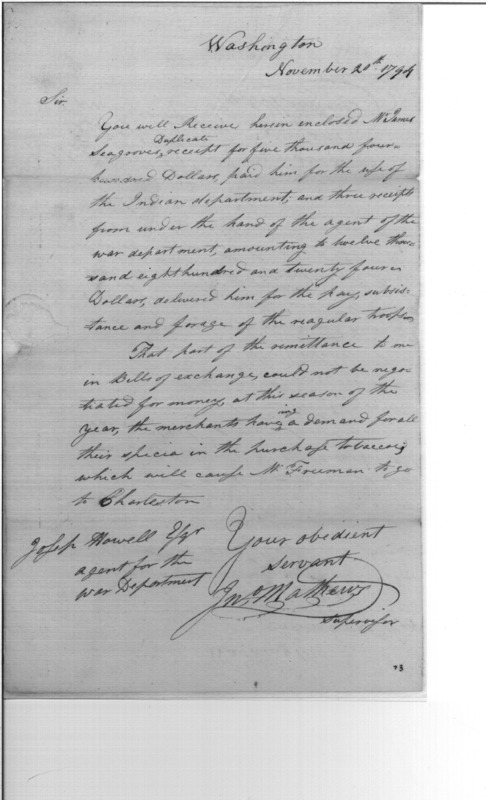 Washington
November 20th 1794
Sir
You will Receive herein enclosed Mr James
Duplicate
Seagroves, receipt for five thousand four
hundred Dollars, paid him for the use of
the Indian department; and three receipts
from under the hand of the agent of the
war department, amounting to twelve thou-
sand eight hundred and twenty four
Dollars, delivered him for the pay, subsis-
tance and forage of the reagular troops
That part of the remittance to me
in Bills of exchange, could not be nego-
tiated for money, at this season of the
year, the merchants having a demand for all
their specia in the purchase tobacco;
which will cause Mr Freeman to go
to Charleston
Your obedient
Servant
Jno Mathews
Supervisor
Joseph Howell Esqr
agent for the
war Department
73